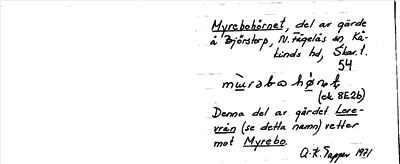 Myrebohörnet, del av gärde
å Björstorp, N. Fågelås sn. Kå-
kinds hd, Skar. l.
54
(ek 8E2b)
Denna del av gärdet Lore-
vrån (se detta namn) vetter
mot Myrebo.
A.-K. Tapper 1971